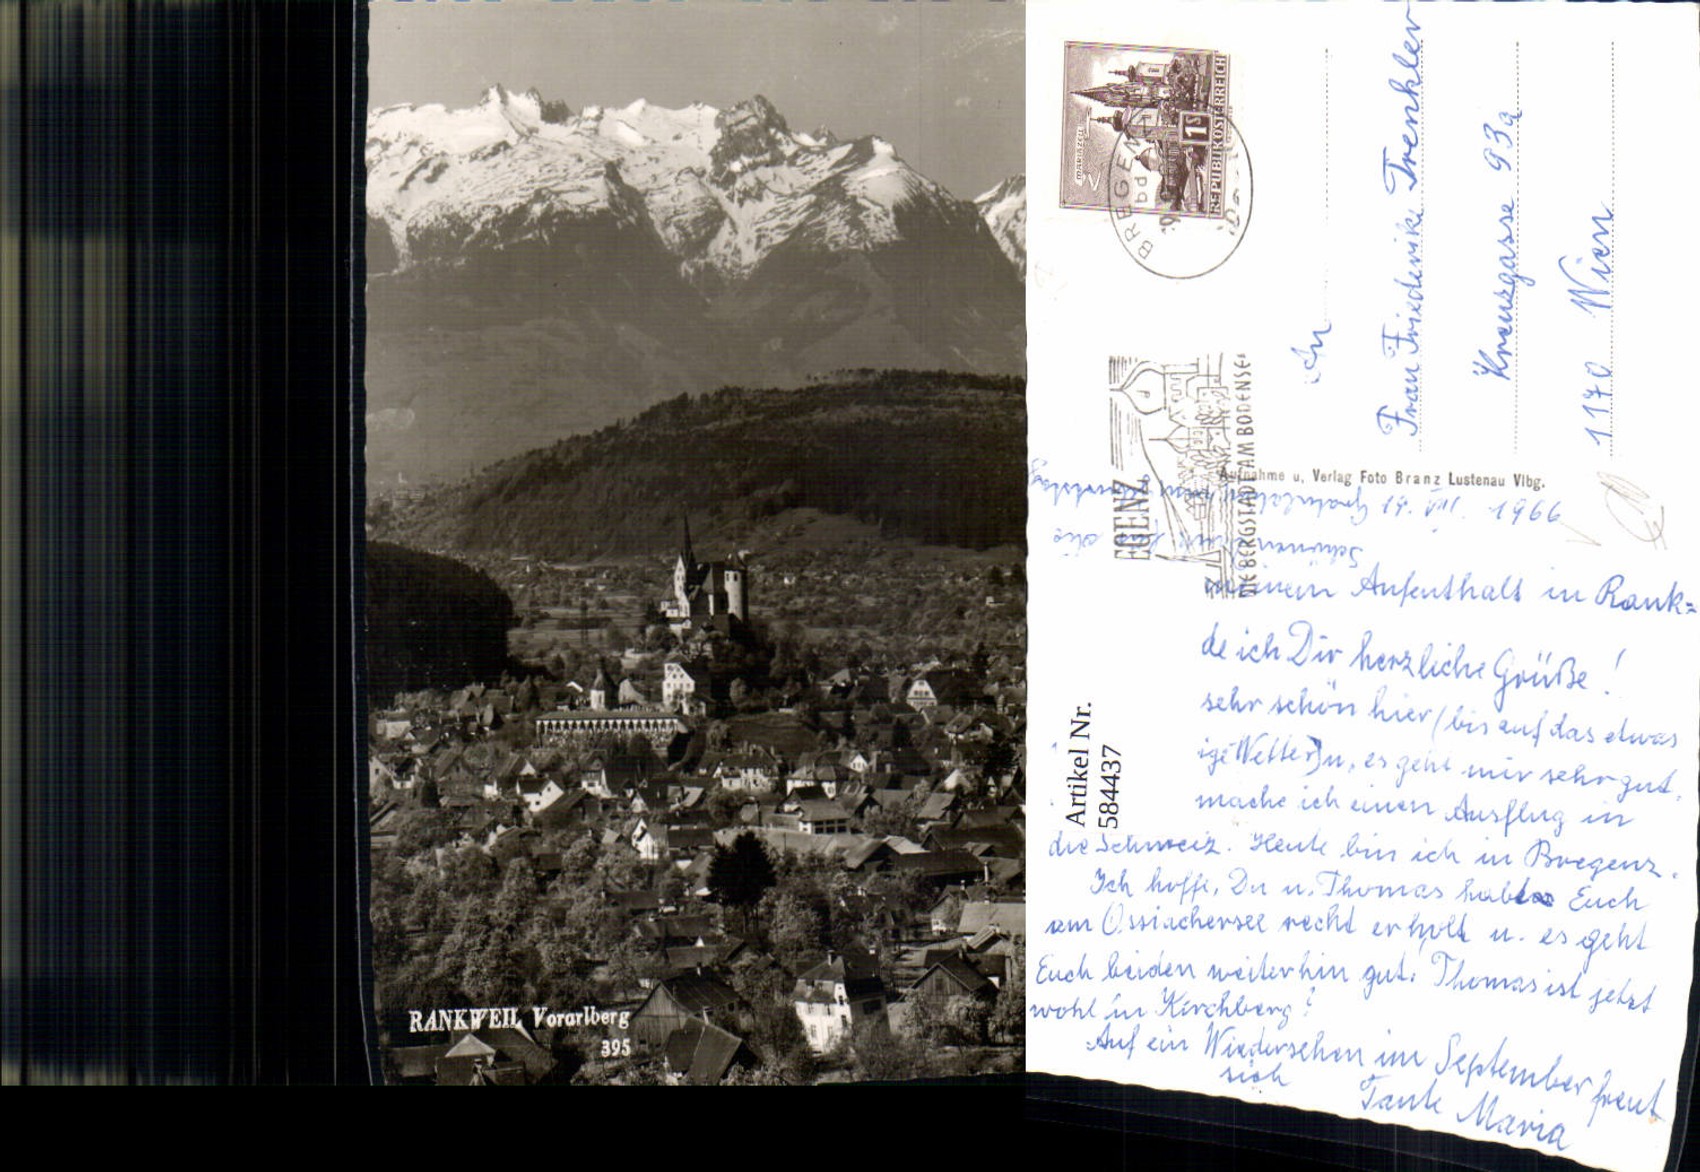 RANKWEIL, Vorarlberg
395
MARIAZELL
1 S
REPUBLIK ÖSTERREICH
BREGENZ
bd
EGENZ
DIE BERGSTADT AM BODENSEE
An
Frau Friederike Trenkler
Kreuzgasse 93a
1170 Wien
Aufnahme u. Verlag Foto Branz Lustenau Vlbg.
19. VIII. 1966
meinem Aufenthalt in Rank=
de ich Dir herzliche Grüße!
sehr schön hier (bis auf das etwas
ige Wetter) u. es geht mir sehr gut.
mache ich einen Ausflug in
die Schweiz. Heute bin ich in Bregenz.
Ich hoffe, Du u. Thomas habt Euch
am Ossiachersee recht erholt u. es geht
Euch beiden weiterhin gut. Thomas ist jetzt
wohl in Kirchberg?
Auf ein Wiedersehen im September freut
sich
Tante Maria
Artikel Nr.
584437